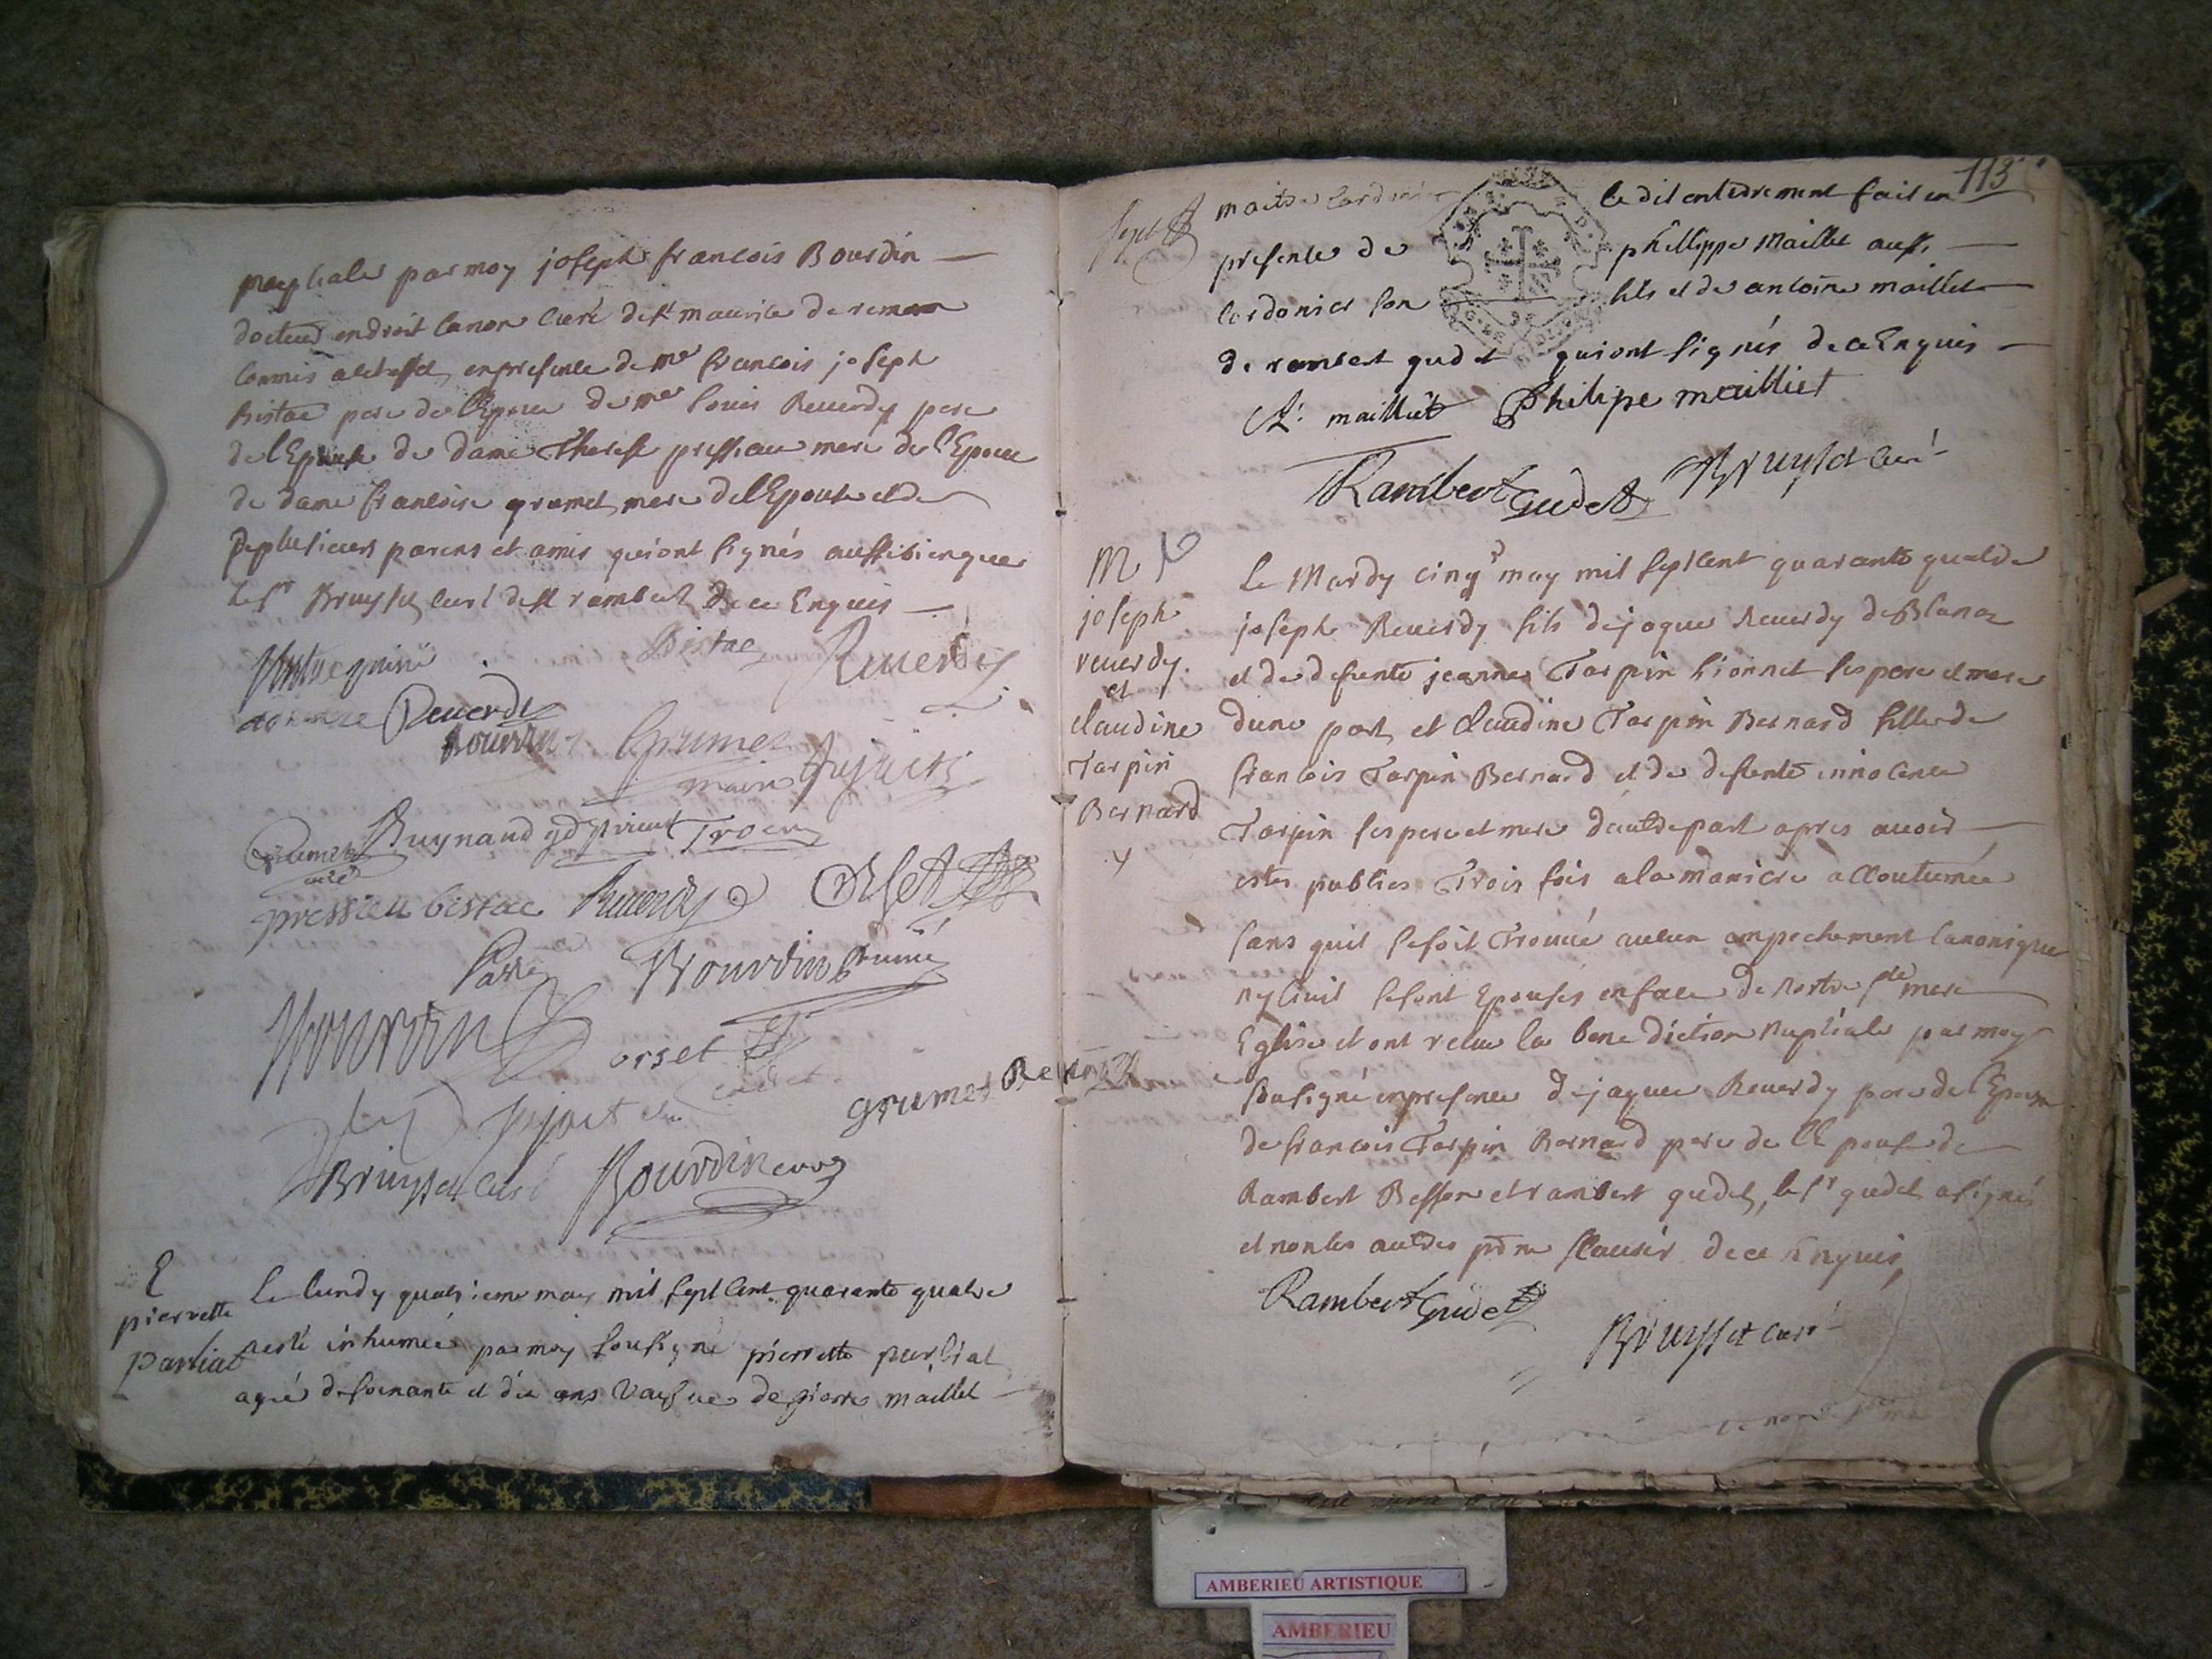 nuptiale par moy joseph francois Bourdin
docteur en droit canon curé de st maurice de remans
commis a cet effet, en presence de me francois joseph
Bistac pere de l'Epoux de me louis Reuerdy pere
de l'Epouse de dame Therese pressieu mere de l'Epoux
de dame francoise grumet mere de l'Epouse et de
plusieurs parens et amis qui ont signés aussi bien que
le sr Bruysset curé de st rambert de ce Enquis
Bistac
Reuerdy
Reuerdy
Bourdin
Grumet
Grumet
Buynaud
pressieu bistac Reuerdy Orset
Bourdin
Bourdin
orset
grumet Reuerdy
Bruysset curé
Bourdin curé
E
pierrette
parliat
Le lundy quatrieme may mil sept cent quarante quatre
a esté inhumée par moy sousigné pierrette parliat
agée de soixante et dix ans veufue de pierre maillet
113
maitre cordonier le dit enterrement fait en
presence de phillippe Maillet aussi
cordonier son fils et de antoine maillet
de rambert gudet qui ont signés de ce Enquis
A: maillet Philipe mailliet
Rambert Gudet Bruysset curé
M
joseph
reuerdy
et
claudine
Tarpin
Bernard
Le Mardy cinq may mil sept cent quarante quatre
joseph Reuerdy fils de jaque Reuerdy de Blanaz
et de defunte jeanne Tarpin lionnet ses pere et mere
d'une part, et claudine Tarpin Bernard fille de
francois Tarpin Bernard et de defunte innocence
Tarpin ses pere et mere d'autre part apres auoir
estes publies Trois fois a la maniere accoutumée
sans quil se soit Trouué aucun empechement canonique
ny ciuil se sont Epousés en face de nostre ste mere
Eglise et ont recue la benediction Nuptiale par moy
sousigné en presence de jaque Reuerdy pere de l'Epoux
de francois Tarpin Bernard pere de l'Epouse de
Rambert Besson et rambert gudet, le sr gudet a signé
et non les autres pr ne scauoir de ce Enquis,
Rambert Gudet
Bruysset curé
AMBERIEU ARTISTIQUE
AMBERIEU